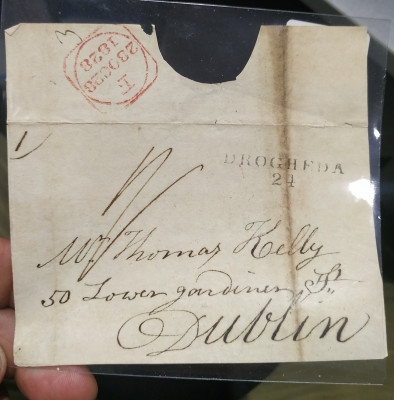 23OC28
1828
E
DROGHEDA
24
Mr. Thomas Kelly
50 Lower gardiner St
Dublin